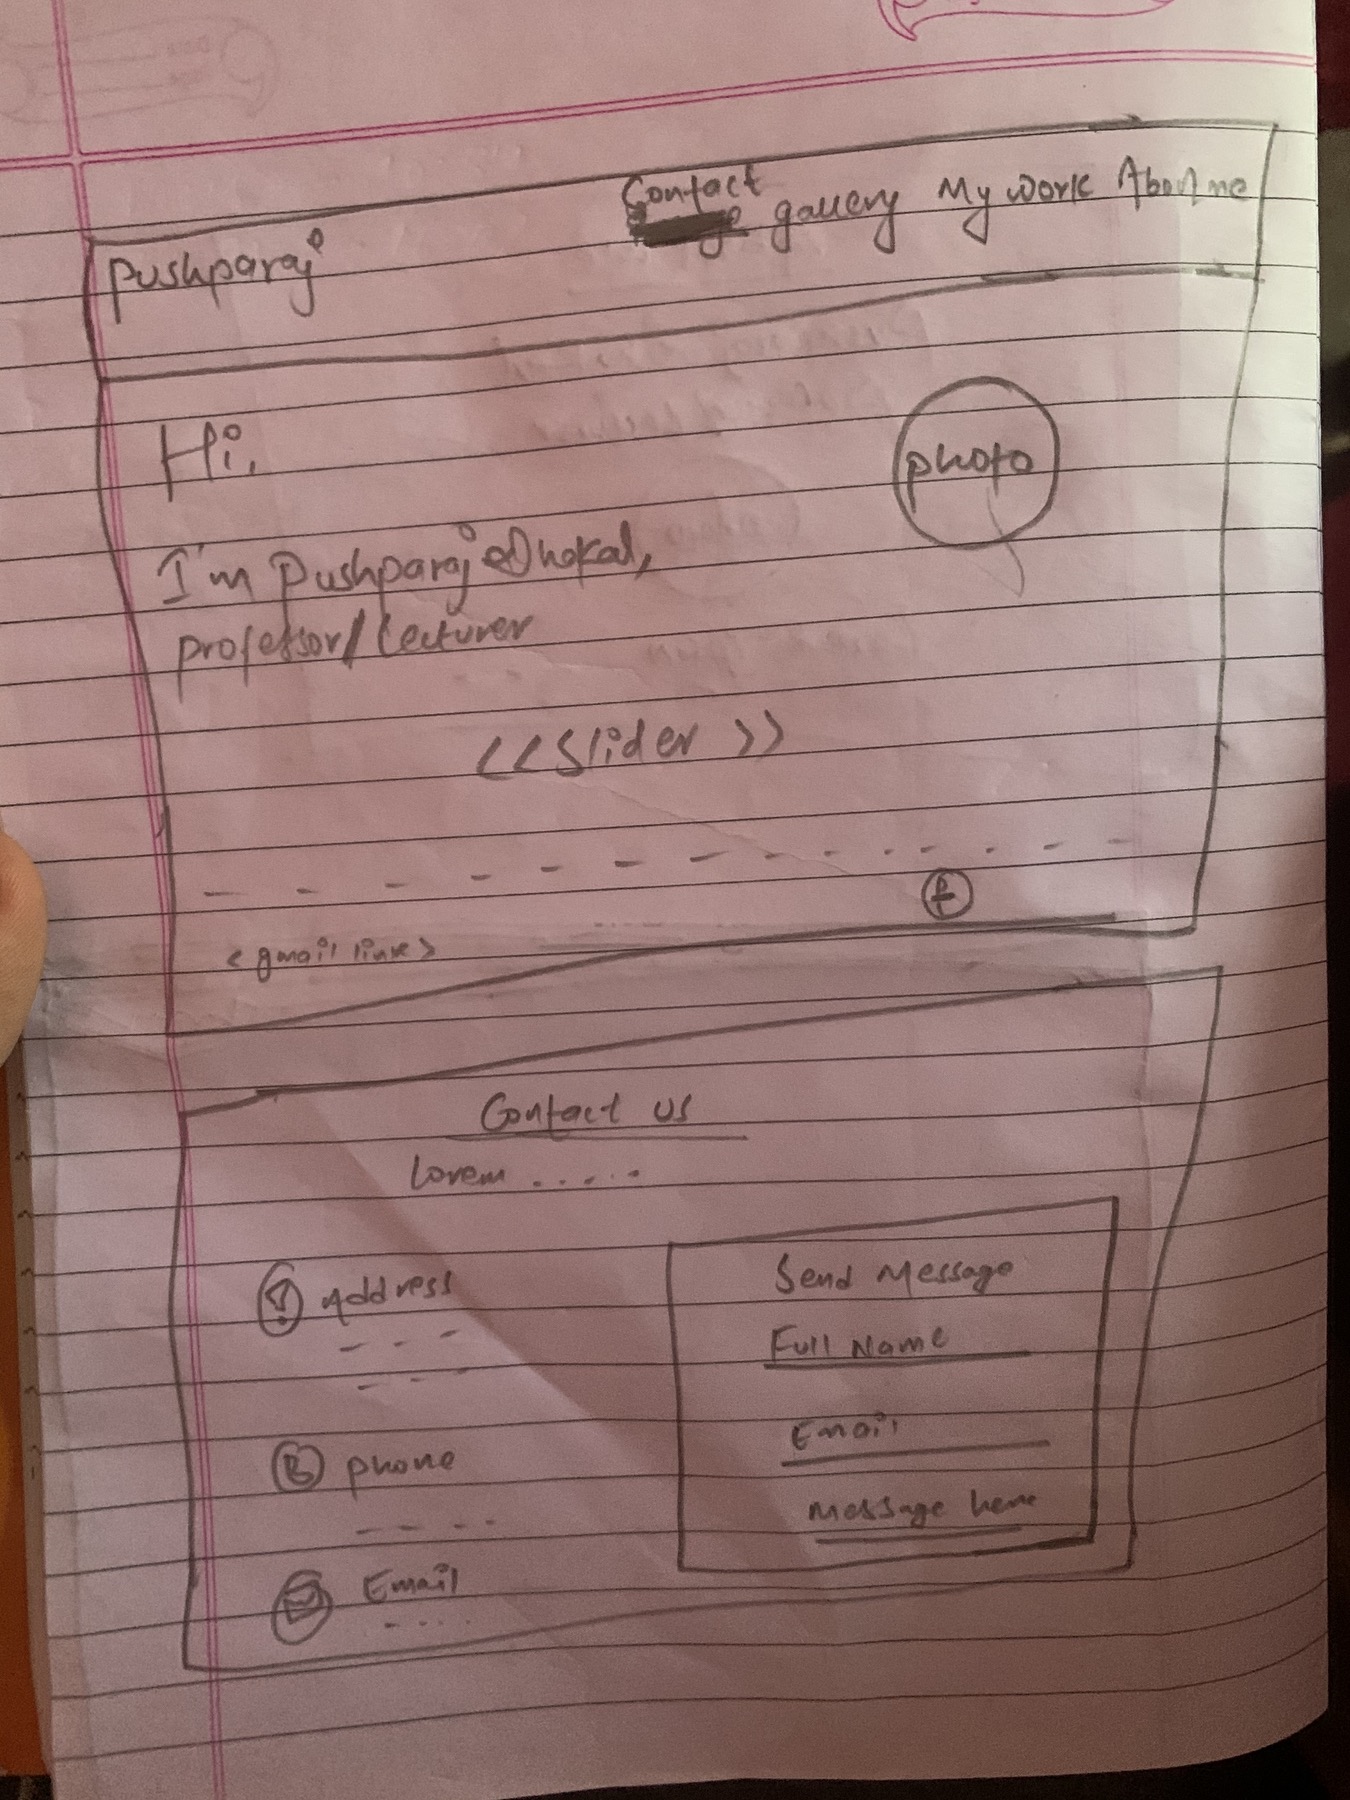 Pushparaj
Contact gallery My work About me
Hi,
photo
I'm Pushparaj Dhakal,
professor/Lecturer
<<Slider>>
<gmail link>
Contact us
Lorem .....
Address
Phone
Email
Send Message
Full Name
Email
Message here